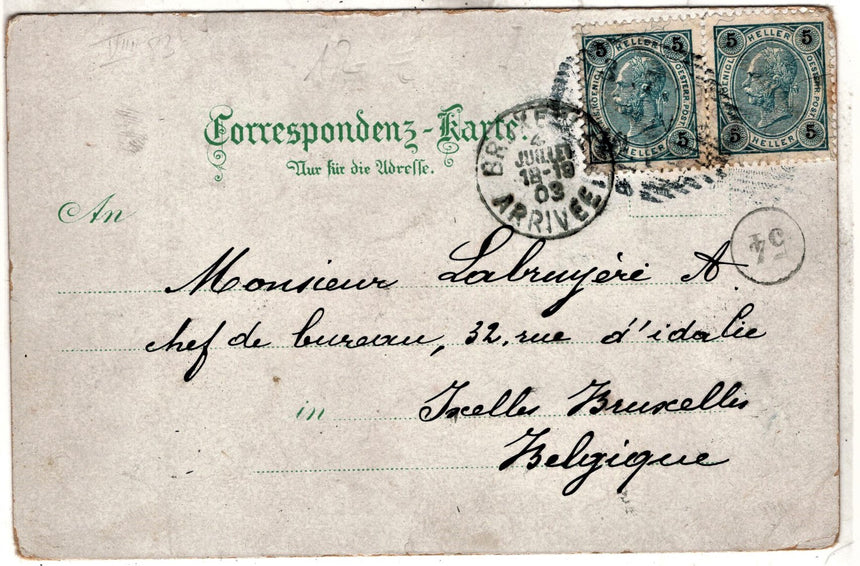 5 HELLER 5
KOENIGL. OESTERR. POST
5 HELLER 5
5 HELLER 5
OESTERR. POST
5 HELLER 5
Correspondenz-Karte.
Nur für die Adresse.
BRUXELLES
4
JUILLET
18-19
03
ARRIVÉE
An
54
Monsieur Labruyére A.
chef de bureau, 32, rue d'idalie
in Ixelles Bruxelles
Belgique